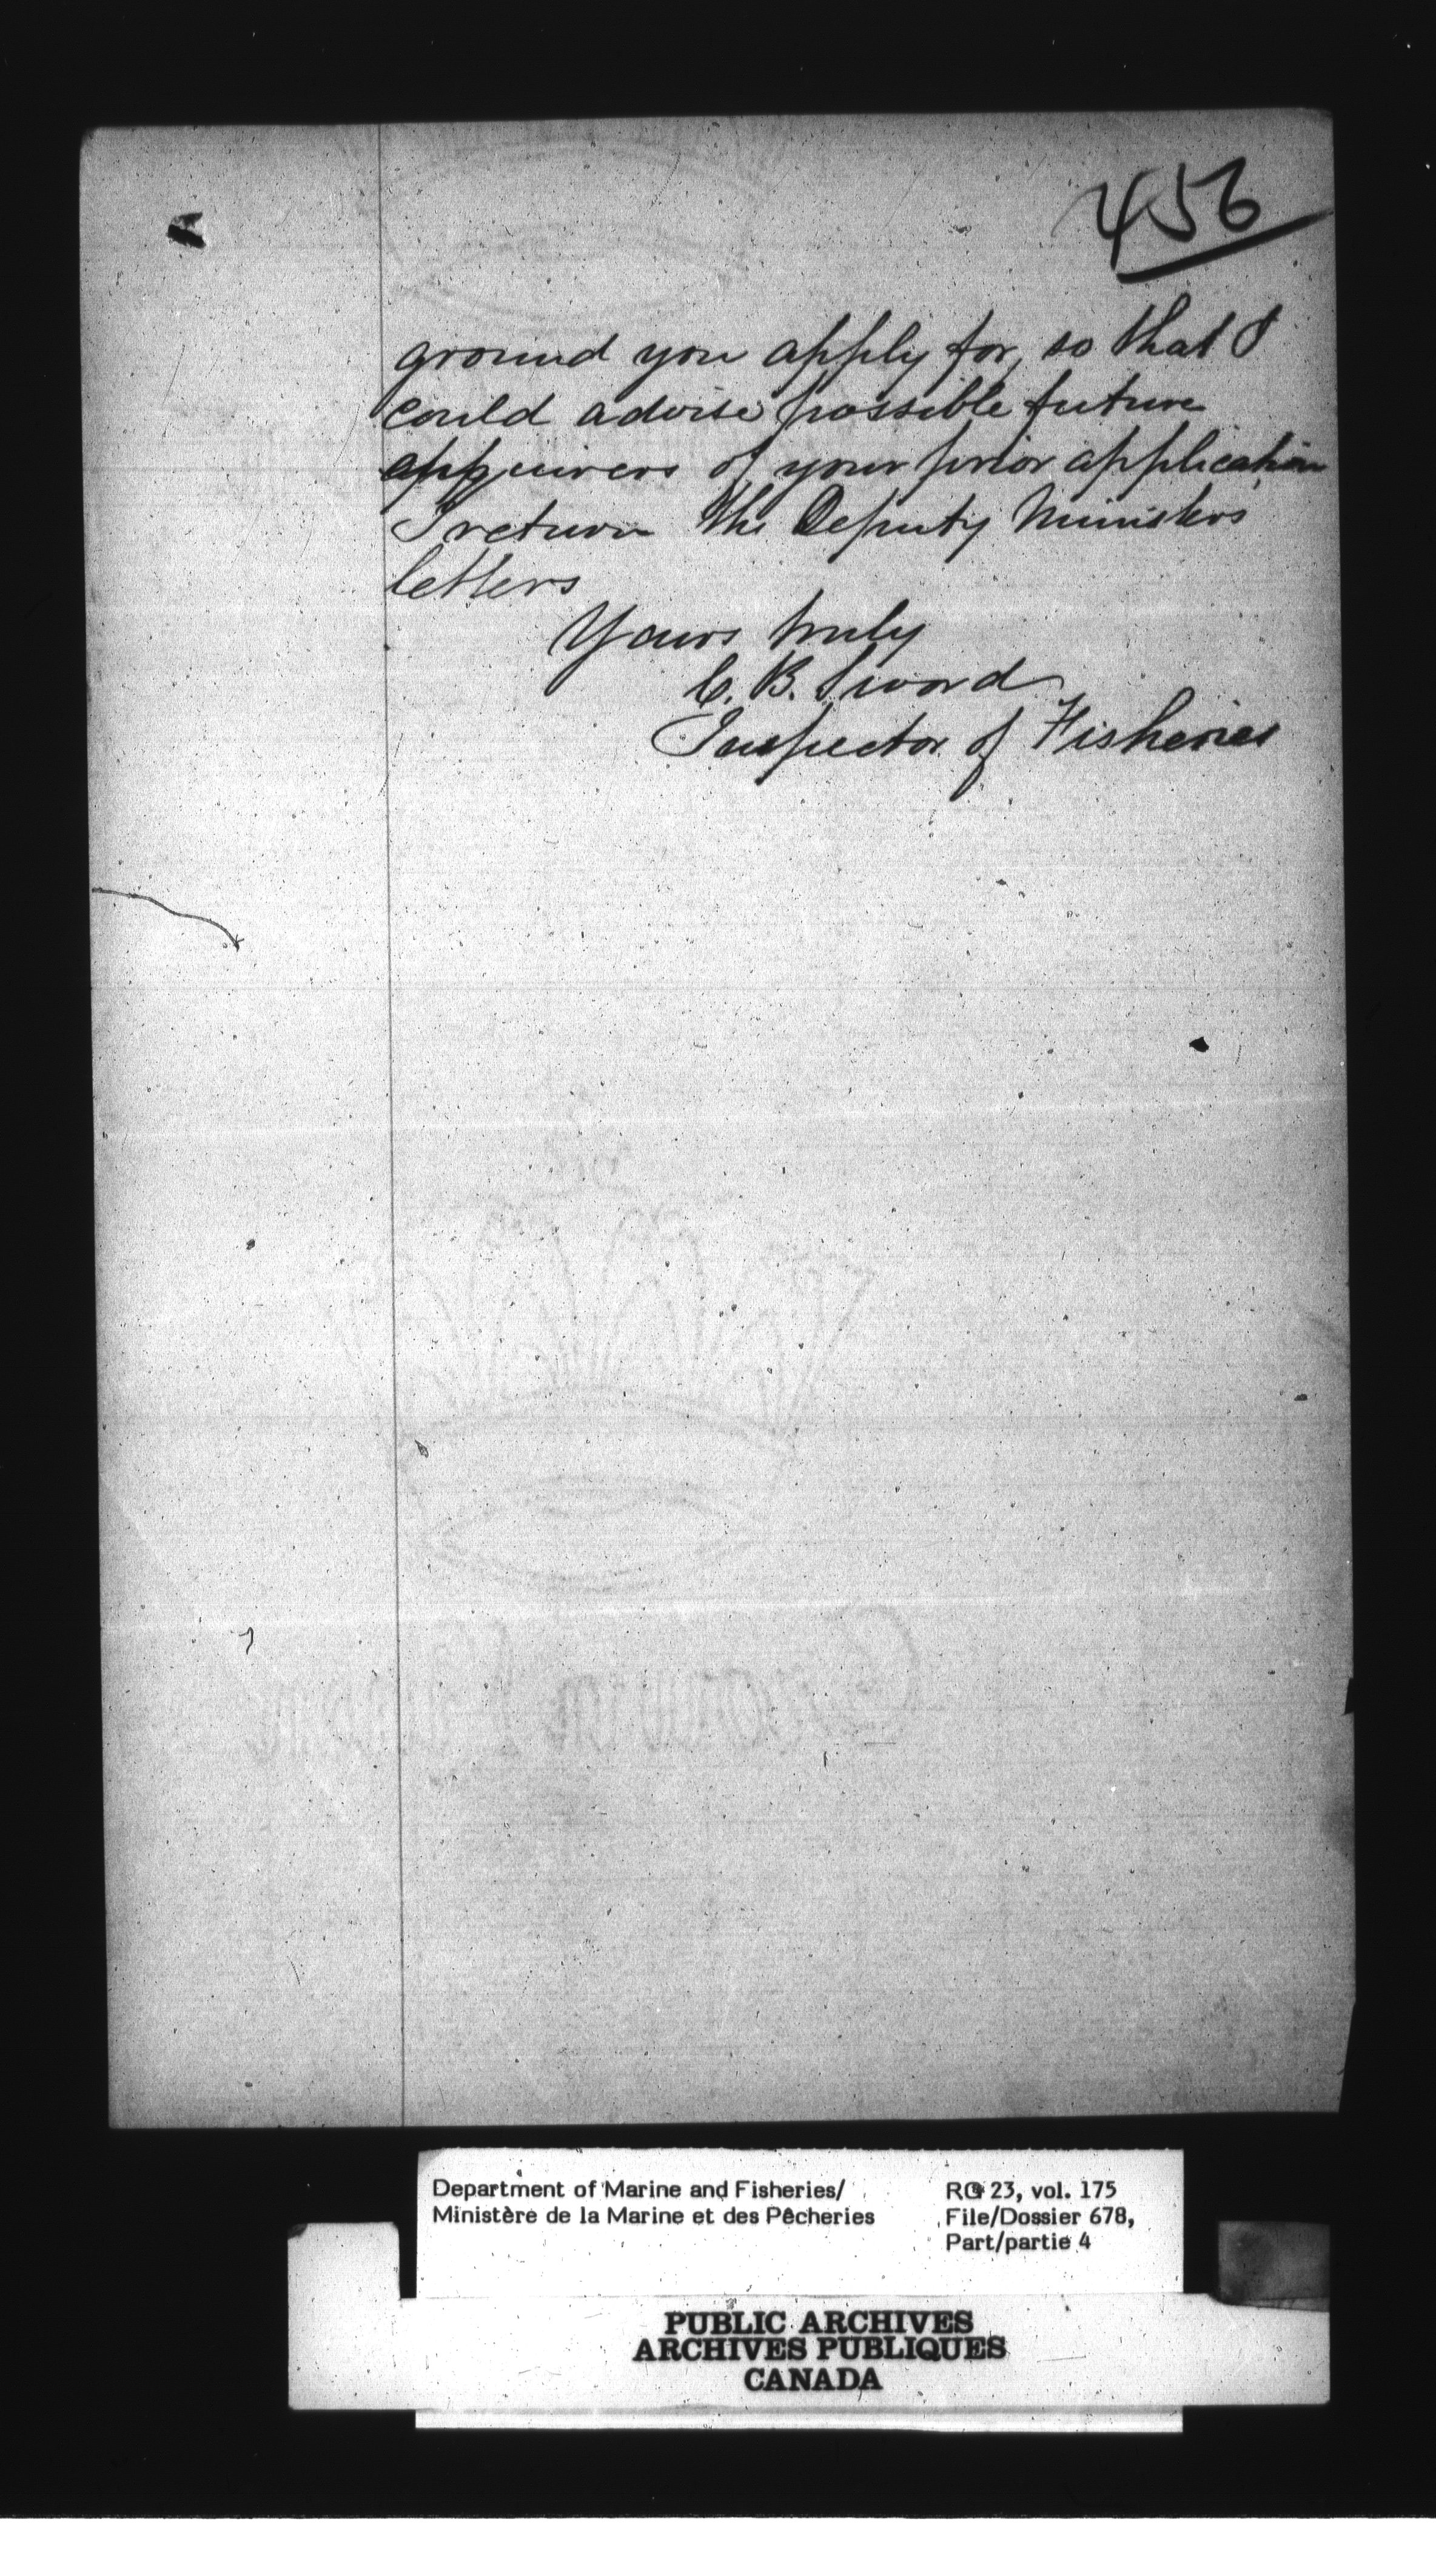 456
ground you apply for, so that I
could advise possible future
enquirers of your prior application
I return the Deputy Ministers
letters
Yours truly
C. B. Sword
Inspector of Fisheries
Department of Marine and Fisheries/
Ministère de la Marine et des Pêcheries
RG 23, vol. 175
File/Dossier 678,
Part/partie 4
PUBLIC ARCHIVES
ARCHIVES PUBLIQUES
CANADA